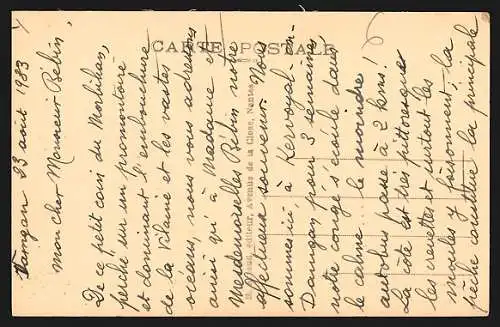 Damgan 23 août 1933
Mon cher Monsieur Bébin,
De ce petit coin du Morbihan,
perché sur un promontoire
et dominant l'embouchure
de la Vilaine et les vastes
océans, nous vous adressons
ainsi qu'à Madame et
Mesdemoiselles Bébin notre
affectueux souvenir. Nous
sommes ici, à Kervoyal-en-
Damgan pour 3 semaines
notre congé s'écoule dans
le calme. le moindre
autobus passe à 2 kms!
La côte est très pittoresque
les crevettes et surtout les
moules y foisonnent; la
pêche constitue la principale
CARTE POSTALE
éditeur, Avenue de la Close, Nantes